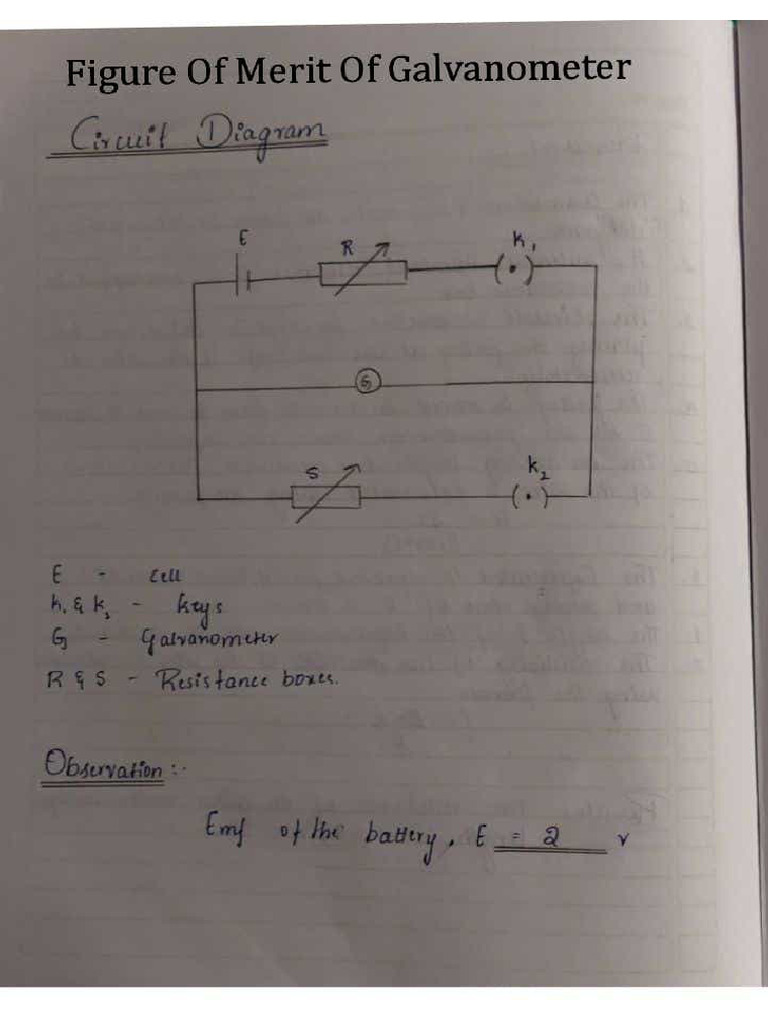 Figure Of Merit Of Galvanometer
Circuit Diagram
E
R
K₁
G
S
K₂
E - Cell
K₁ & K₂ - Keys
G - Galvanometer
R & S - Resistance boxes.
Observation :-
Emf of the battery, E = 2 v